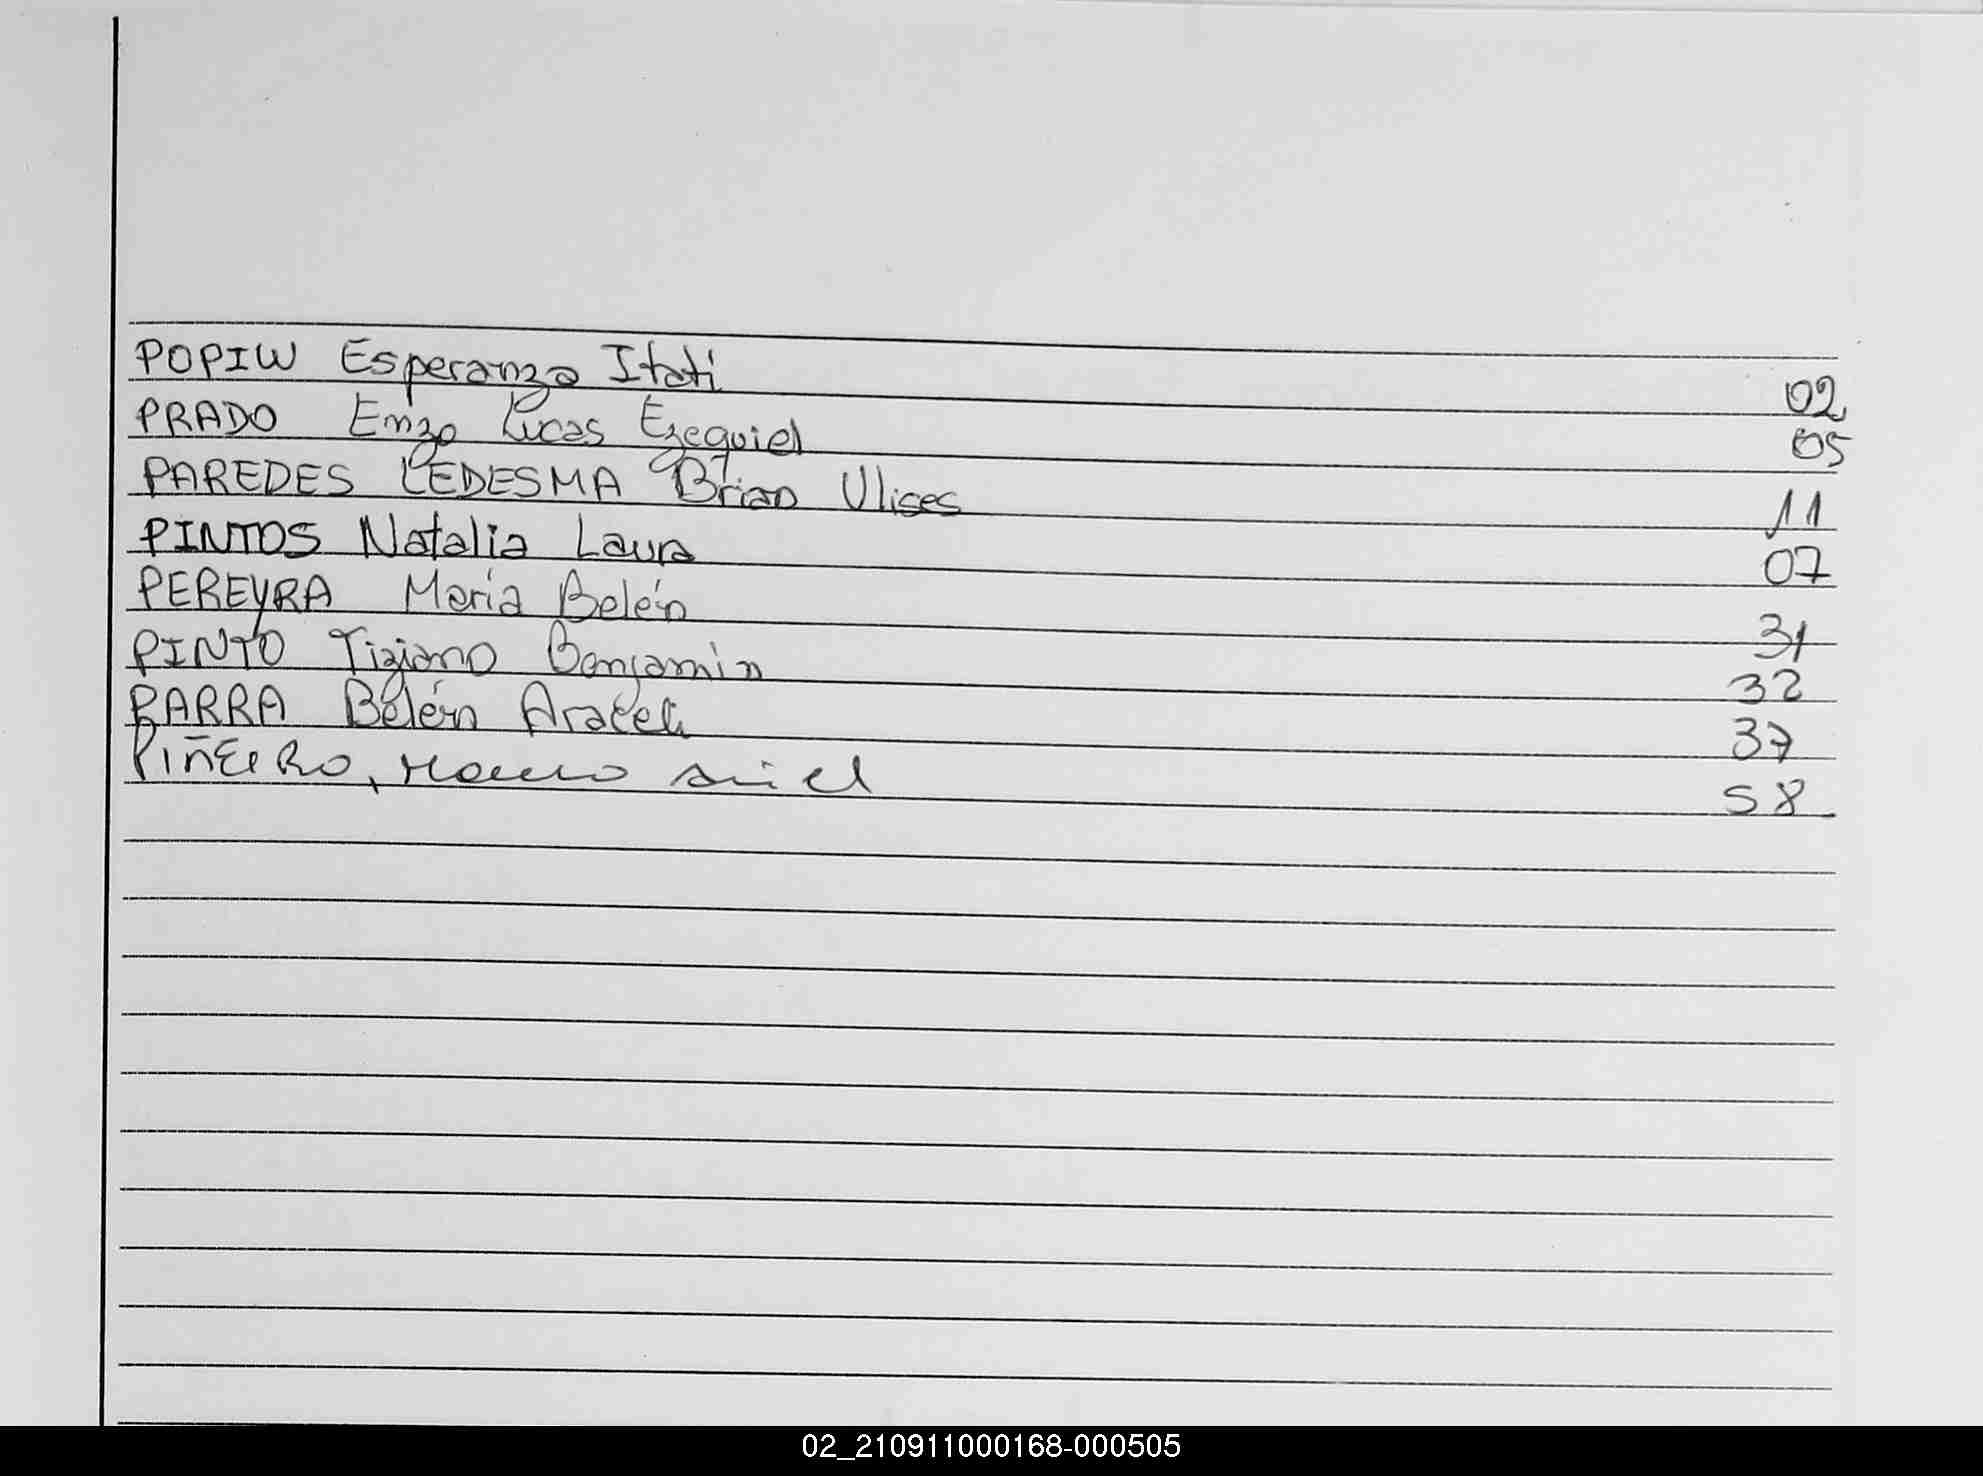 POPIW Esperanza Itati 02
PRADO Enzo Lucas Ezequiel 05
PAREDES LEDESMA Brian Ulises 11
PINTOS Natalia Laura 07
PEREYRA María Belén 31
PINTO Tiziano Benjamin 32
PARRA Belén Araceli 37
PIÑEIRO, Ariel 58
02_210911000168-000505